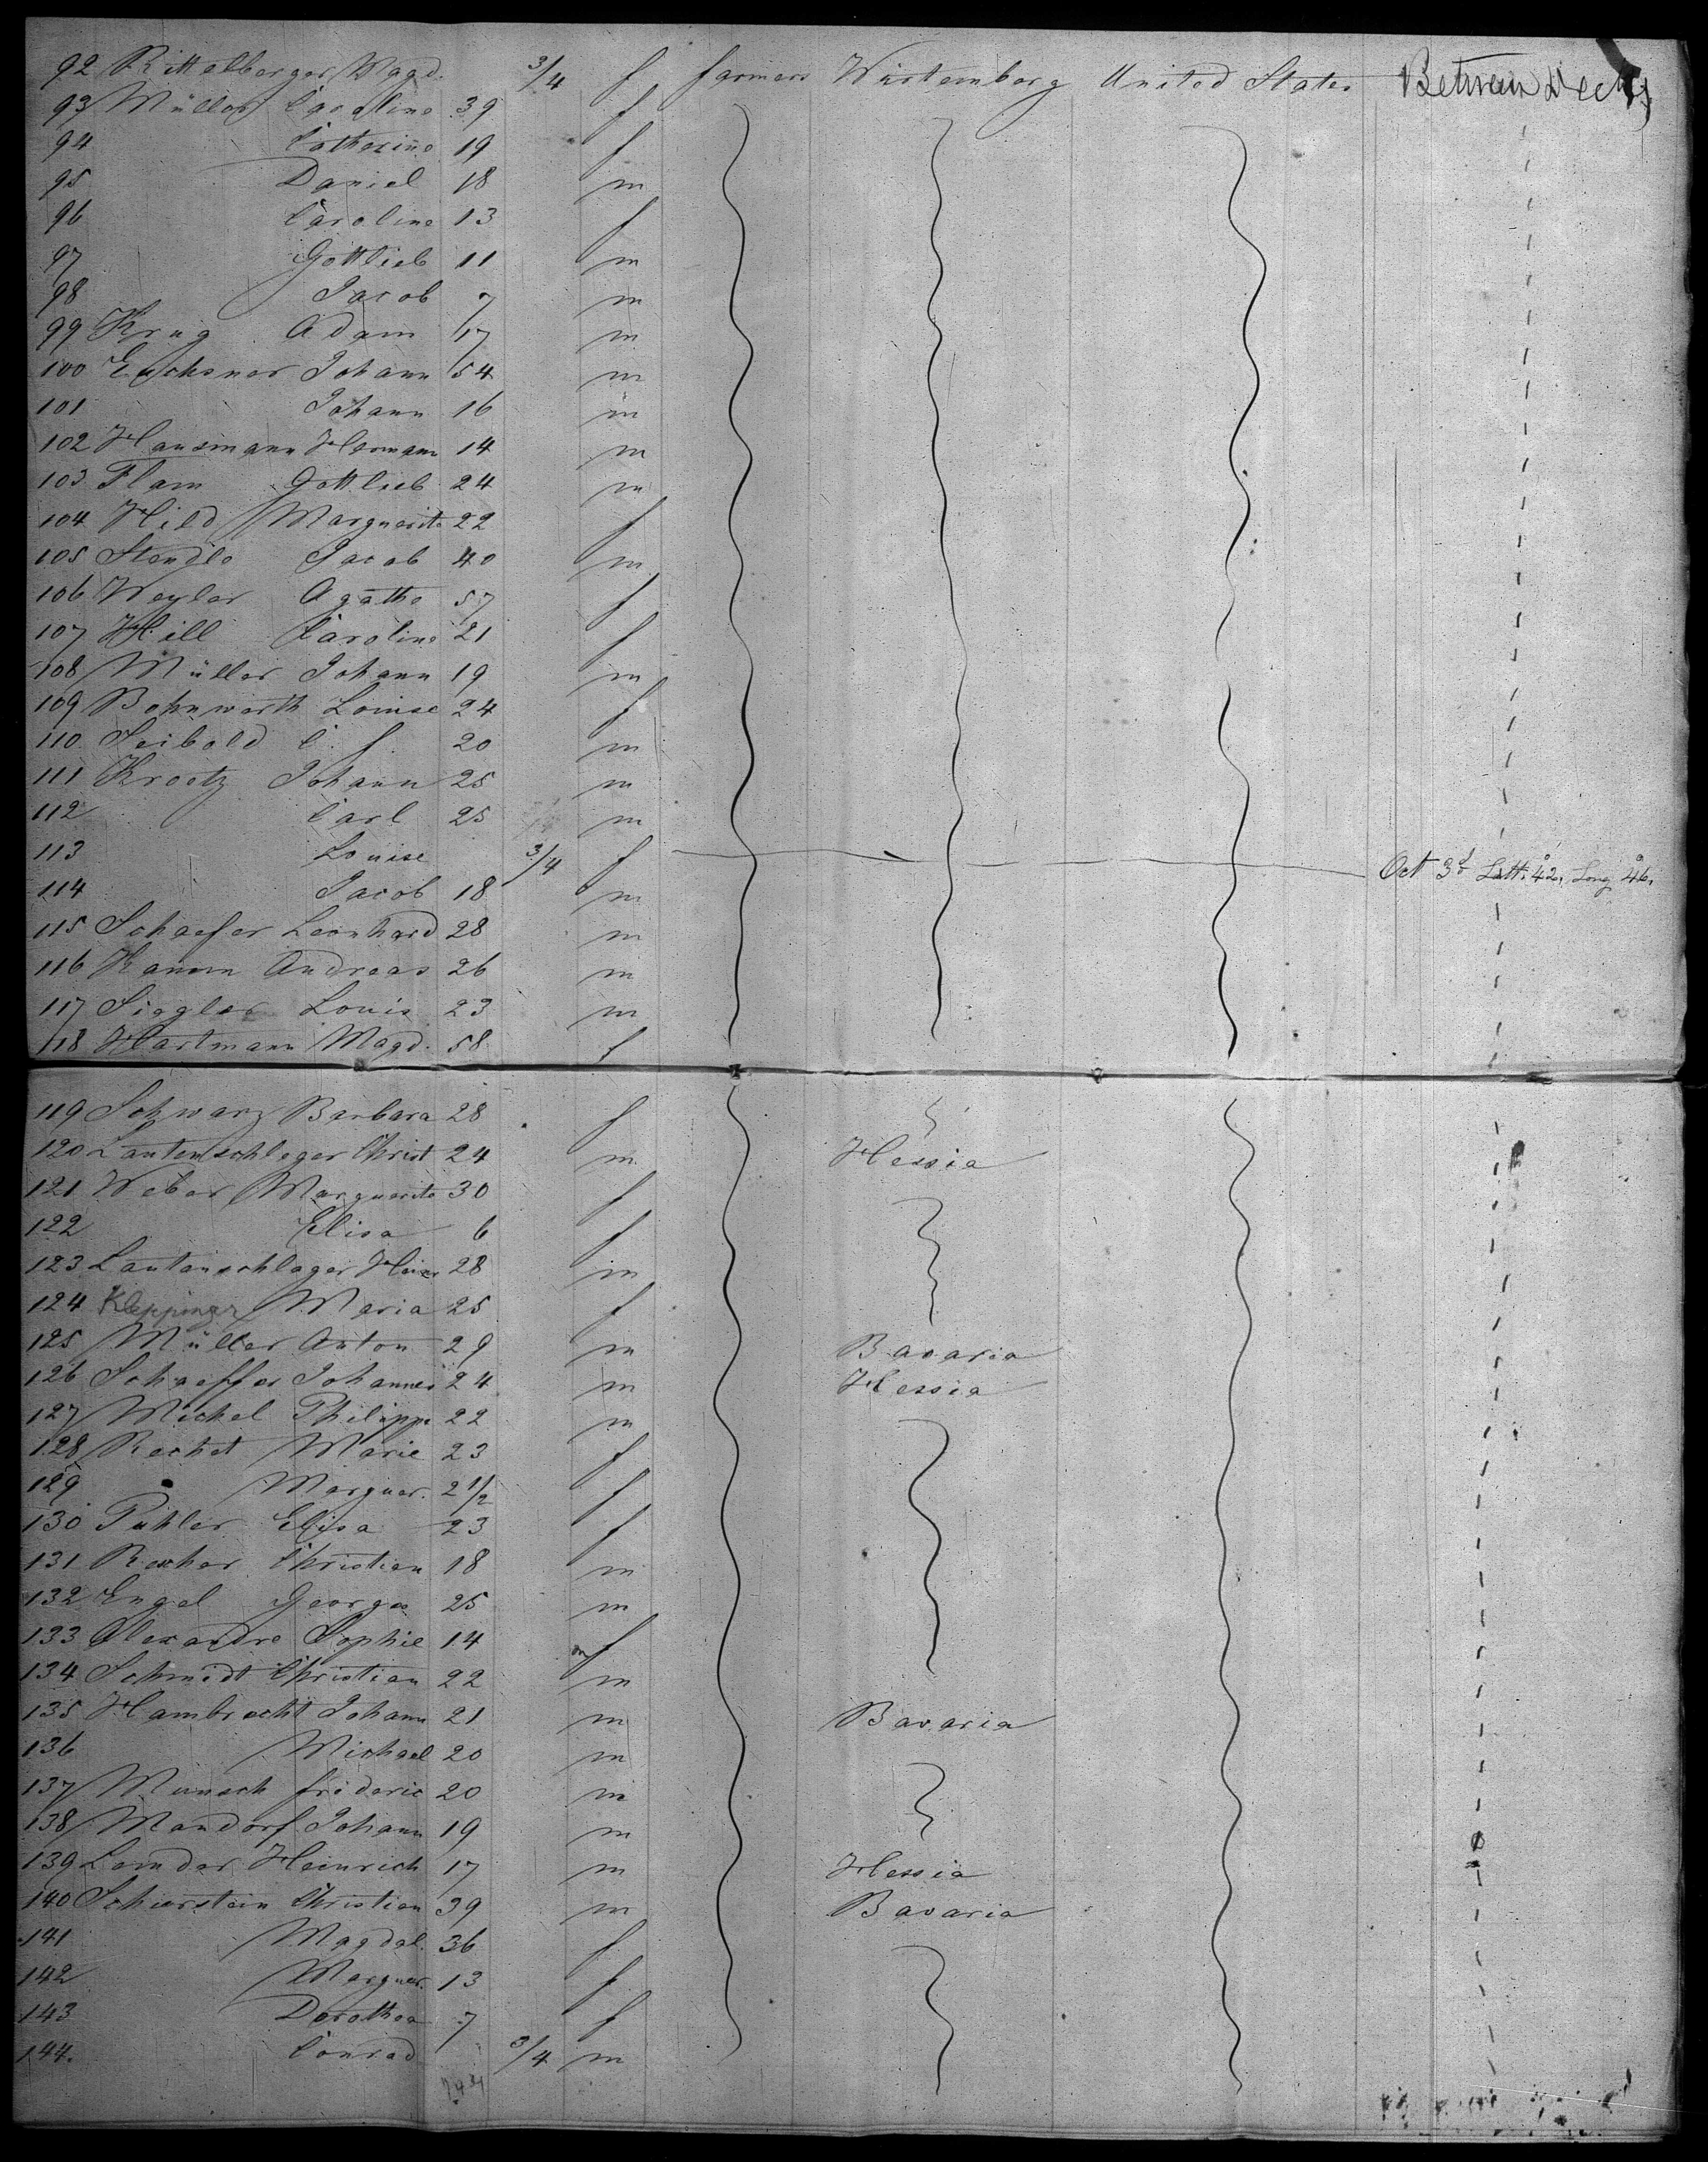 92 Rittelberger Magd. 3/4 f farmers Würtemberg United States Between Decks
93 Müller Caroline 39 f
94 Catherine 19 f
95 Daniel 18 m
96 Caroline 13 f
97 Gottlieb 11 m
98 Jacob 7 m
99 Krug Adam 17 m
100 Johann 54 m
101 Johann 16 m
102 Hausmann Hermann 14 m
103 Flam Gottlieb 24 m
104 Hild Marguerite 22 f
105 Stendle Jacob 40 m
106 Weyler Agathe 57 f
107 Hill Caroline 21 f
108 Müller Johann 19 m
109 Bohnwarth Louise 24 f
110 Seibold C. f. 20 m
111 Krootz Johann 25 m
112 Carl 25 m
113 Louise 3/4 f Oct 3d Latt. 42, Long 46,
114 Jacob 18 m
115 Schaefer Leonhard 28 m
116 Andreas 26 m
117 Siegler Louis 23 m
118 Hartmann Magd. 58 f
119 Schwarz Barbara 28 f
120 Lautenschleger Christ 24 m Hessia
121 Weber Marguerite 30 f
122 Elisa 6 f
123 Lautenschlager 28 m
124 Klepping Maria 25 f
125 Müller Anton 29 m Bavaria
126 Schaeffer Johannes 24 m Hessia
127 Michel Philippe 22 m
128 Rechet Marie 23 f
129 Marguer. 2 1/2 f
130 Puhler Elisa 23 f
131 Christian 18 m
132 Engel Georges 25 m
133 Alexandre Sophie 14 f
134 Schmidt Christian 22 m
135 Hambrecht Johann 21 m Bavaria
136 Michael 20 m
137 Munsch frederic 20 m
138 Mandorf Johann 19 m
139 Lemder Heinrich 17 m Hessia
140 Schierstein Christian 39 m Bavaria
141 Magdal. 36 f
142 Marguer. 13 f
143 Dorothea 7 f
144. Conrad 3/4 m